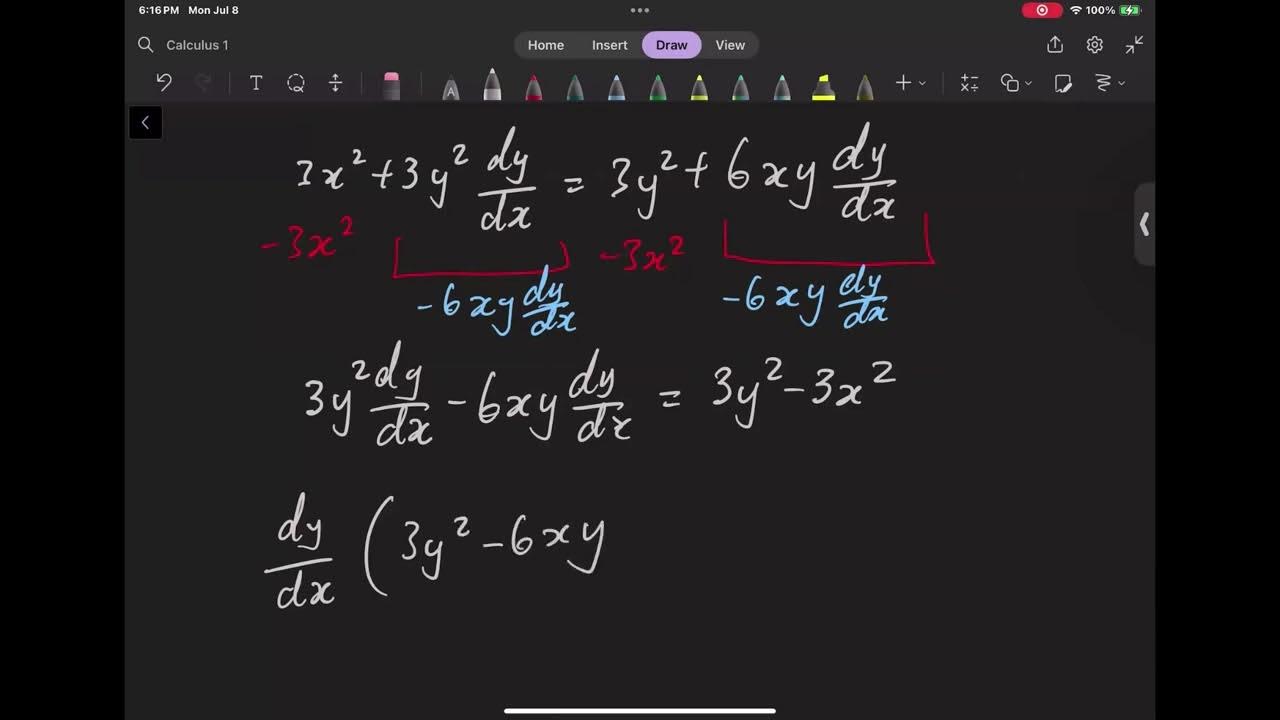 6:16 PM Mon Jul 8 100%
Calculus 1 Home Insert Draw View
T A
3x² + 3y² dy/dx = 3y² + 6xy dy/dx
-3x² -3x²
-6xy dy/dx -6xy dy/dx
3y² dy/dx - 6xy dy/dx = 3y² - 3x²
dy/dx (3y² - 6xy